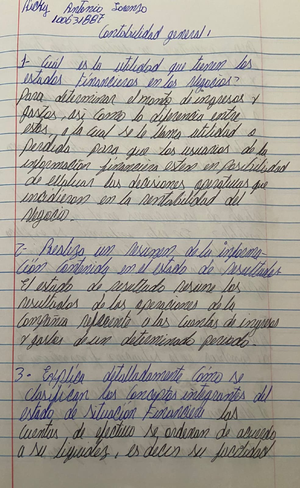 Antonio Lorenzo
100631887
Contabilidad general 1
1- Cual es la utilidad que tienen los
estados Financieros en los Negocios?
Para determinar el monto de ingresos y
gastos, asi como la diferencia entre
estos, a la cual se le llama utilidad o
perdida para que los usuarios de la
informacion financiera esten en posibilidad
de evaluar las decisiones operativas que
incidieron en la rentabilidad del
Negocio.
2- Realiza un resumen de la informa-
ción contenida en el estado de resultados
El estado de resultado resume los
resultados de las operaciones de la
compañia referente a las cuentas de ingresos
y gastos de un determinado periodo.
3- Explica detalladamente como se
clasifican los conceptos integrantes del
estado de situacion Financiera las
cuentas de efectivo se ordenan de acuerdo
a su liquidez, es decir su facilidad